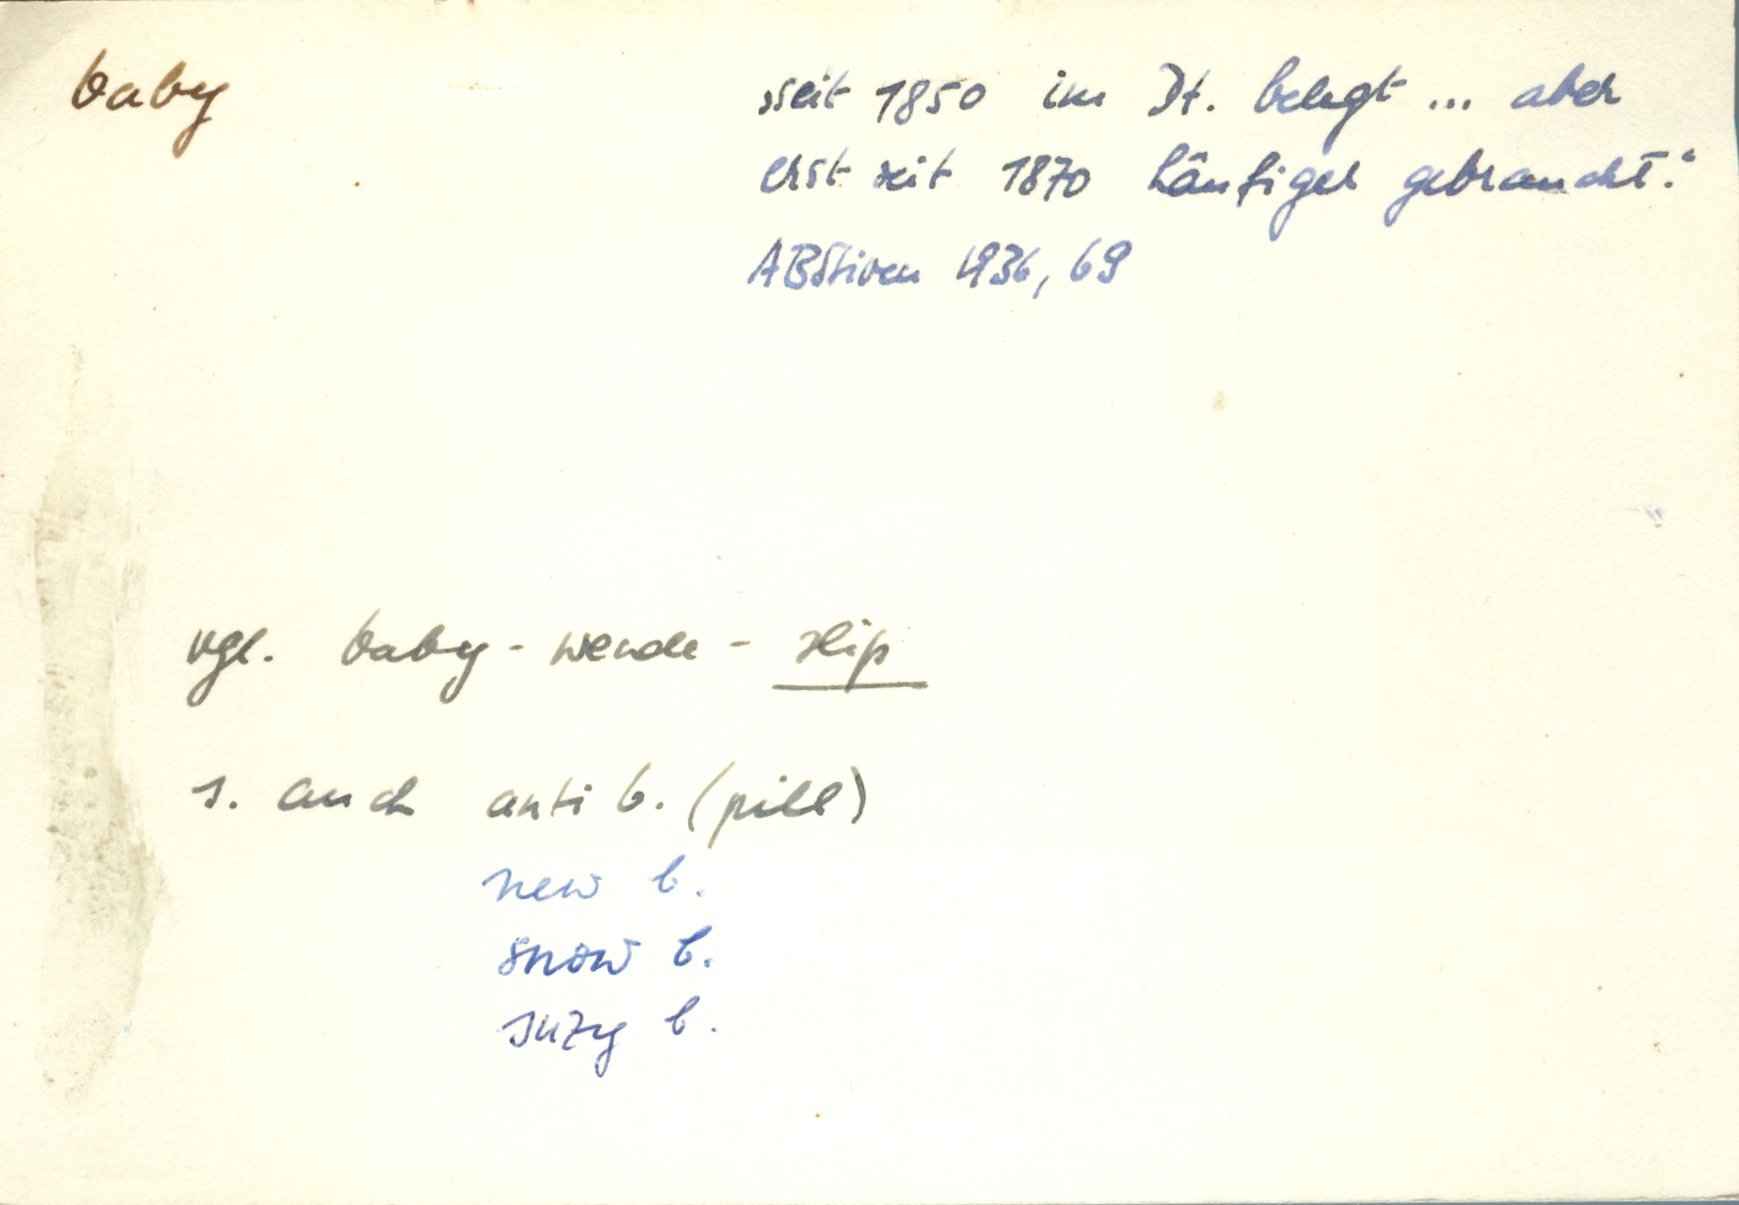 baby
"seit 1850 im Dt. belegt ... aber
erst seit 1870 häufiger gebraucht."
ABStiven 1936, 69
vgl. baby - wende - slip
s. auch anti b. (pill)
new b.
snow b.
suzy b.